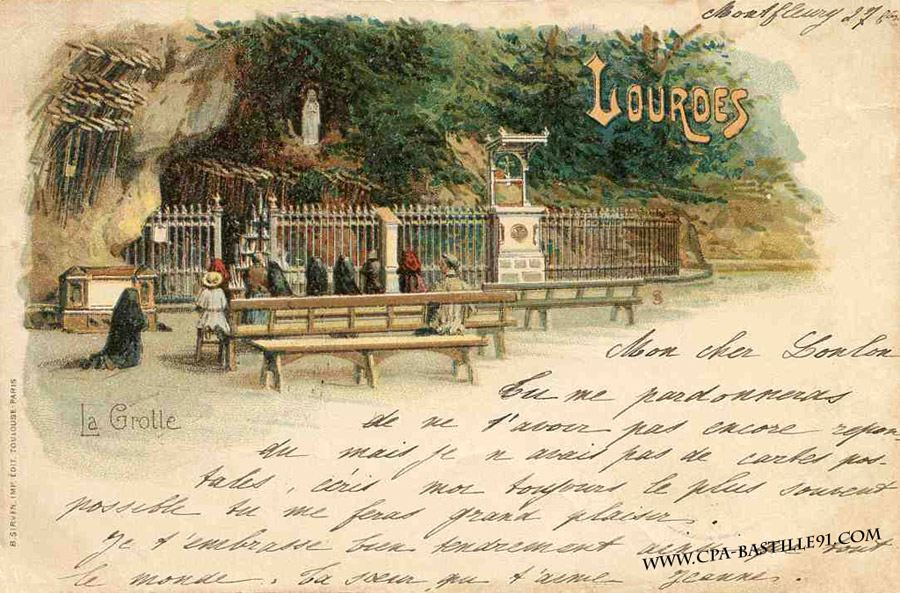 Montfleury 27
LOURDES
Mon cher Lonlon
Tu me pardonneras
de ne t'avoir pas encore repon-
du mais je n avais pas de cartes pos-
tales, écris moi toujours le plus souvent
possible tu me feras grand plaisir.
Je t'embrasse bien tendrement ainsi que tout
le monde. Ta sœur qu t'aime Jeanne.
La Grotte
B. SIRVEN, IMP. ÉDIT. TOULOUSE-PARIS
WWW.CPA-BASTILLE91.COM